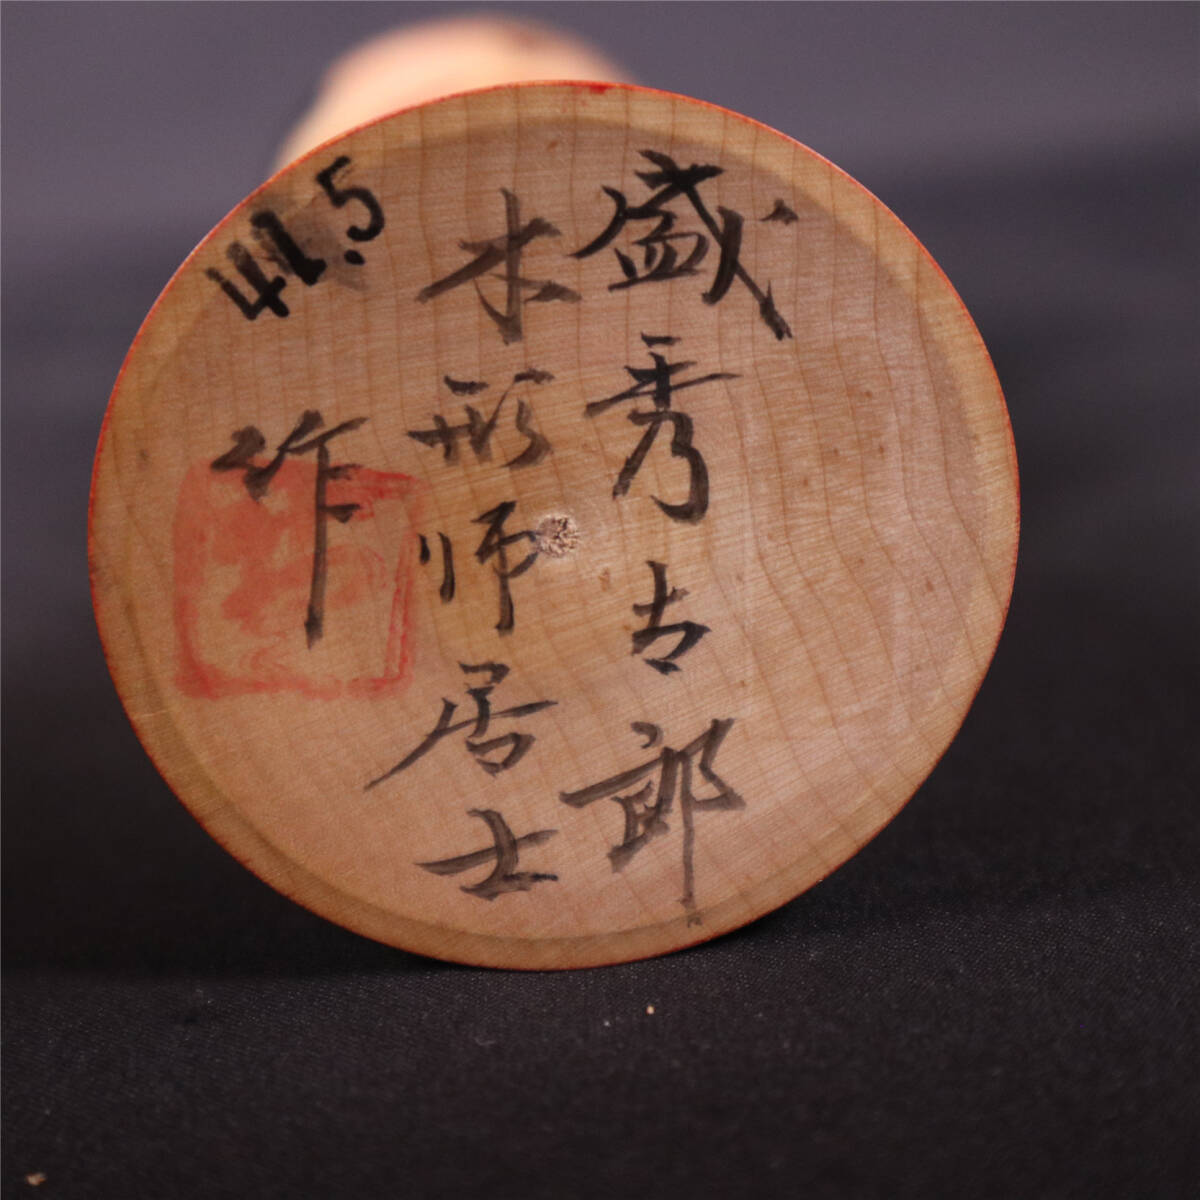 盛秀太郎
木形师居士
作
41.5